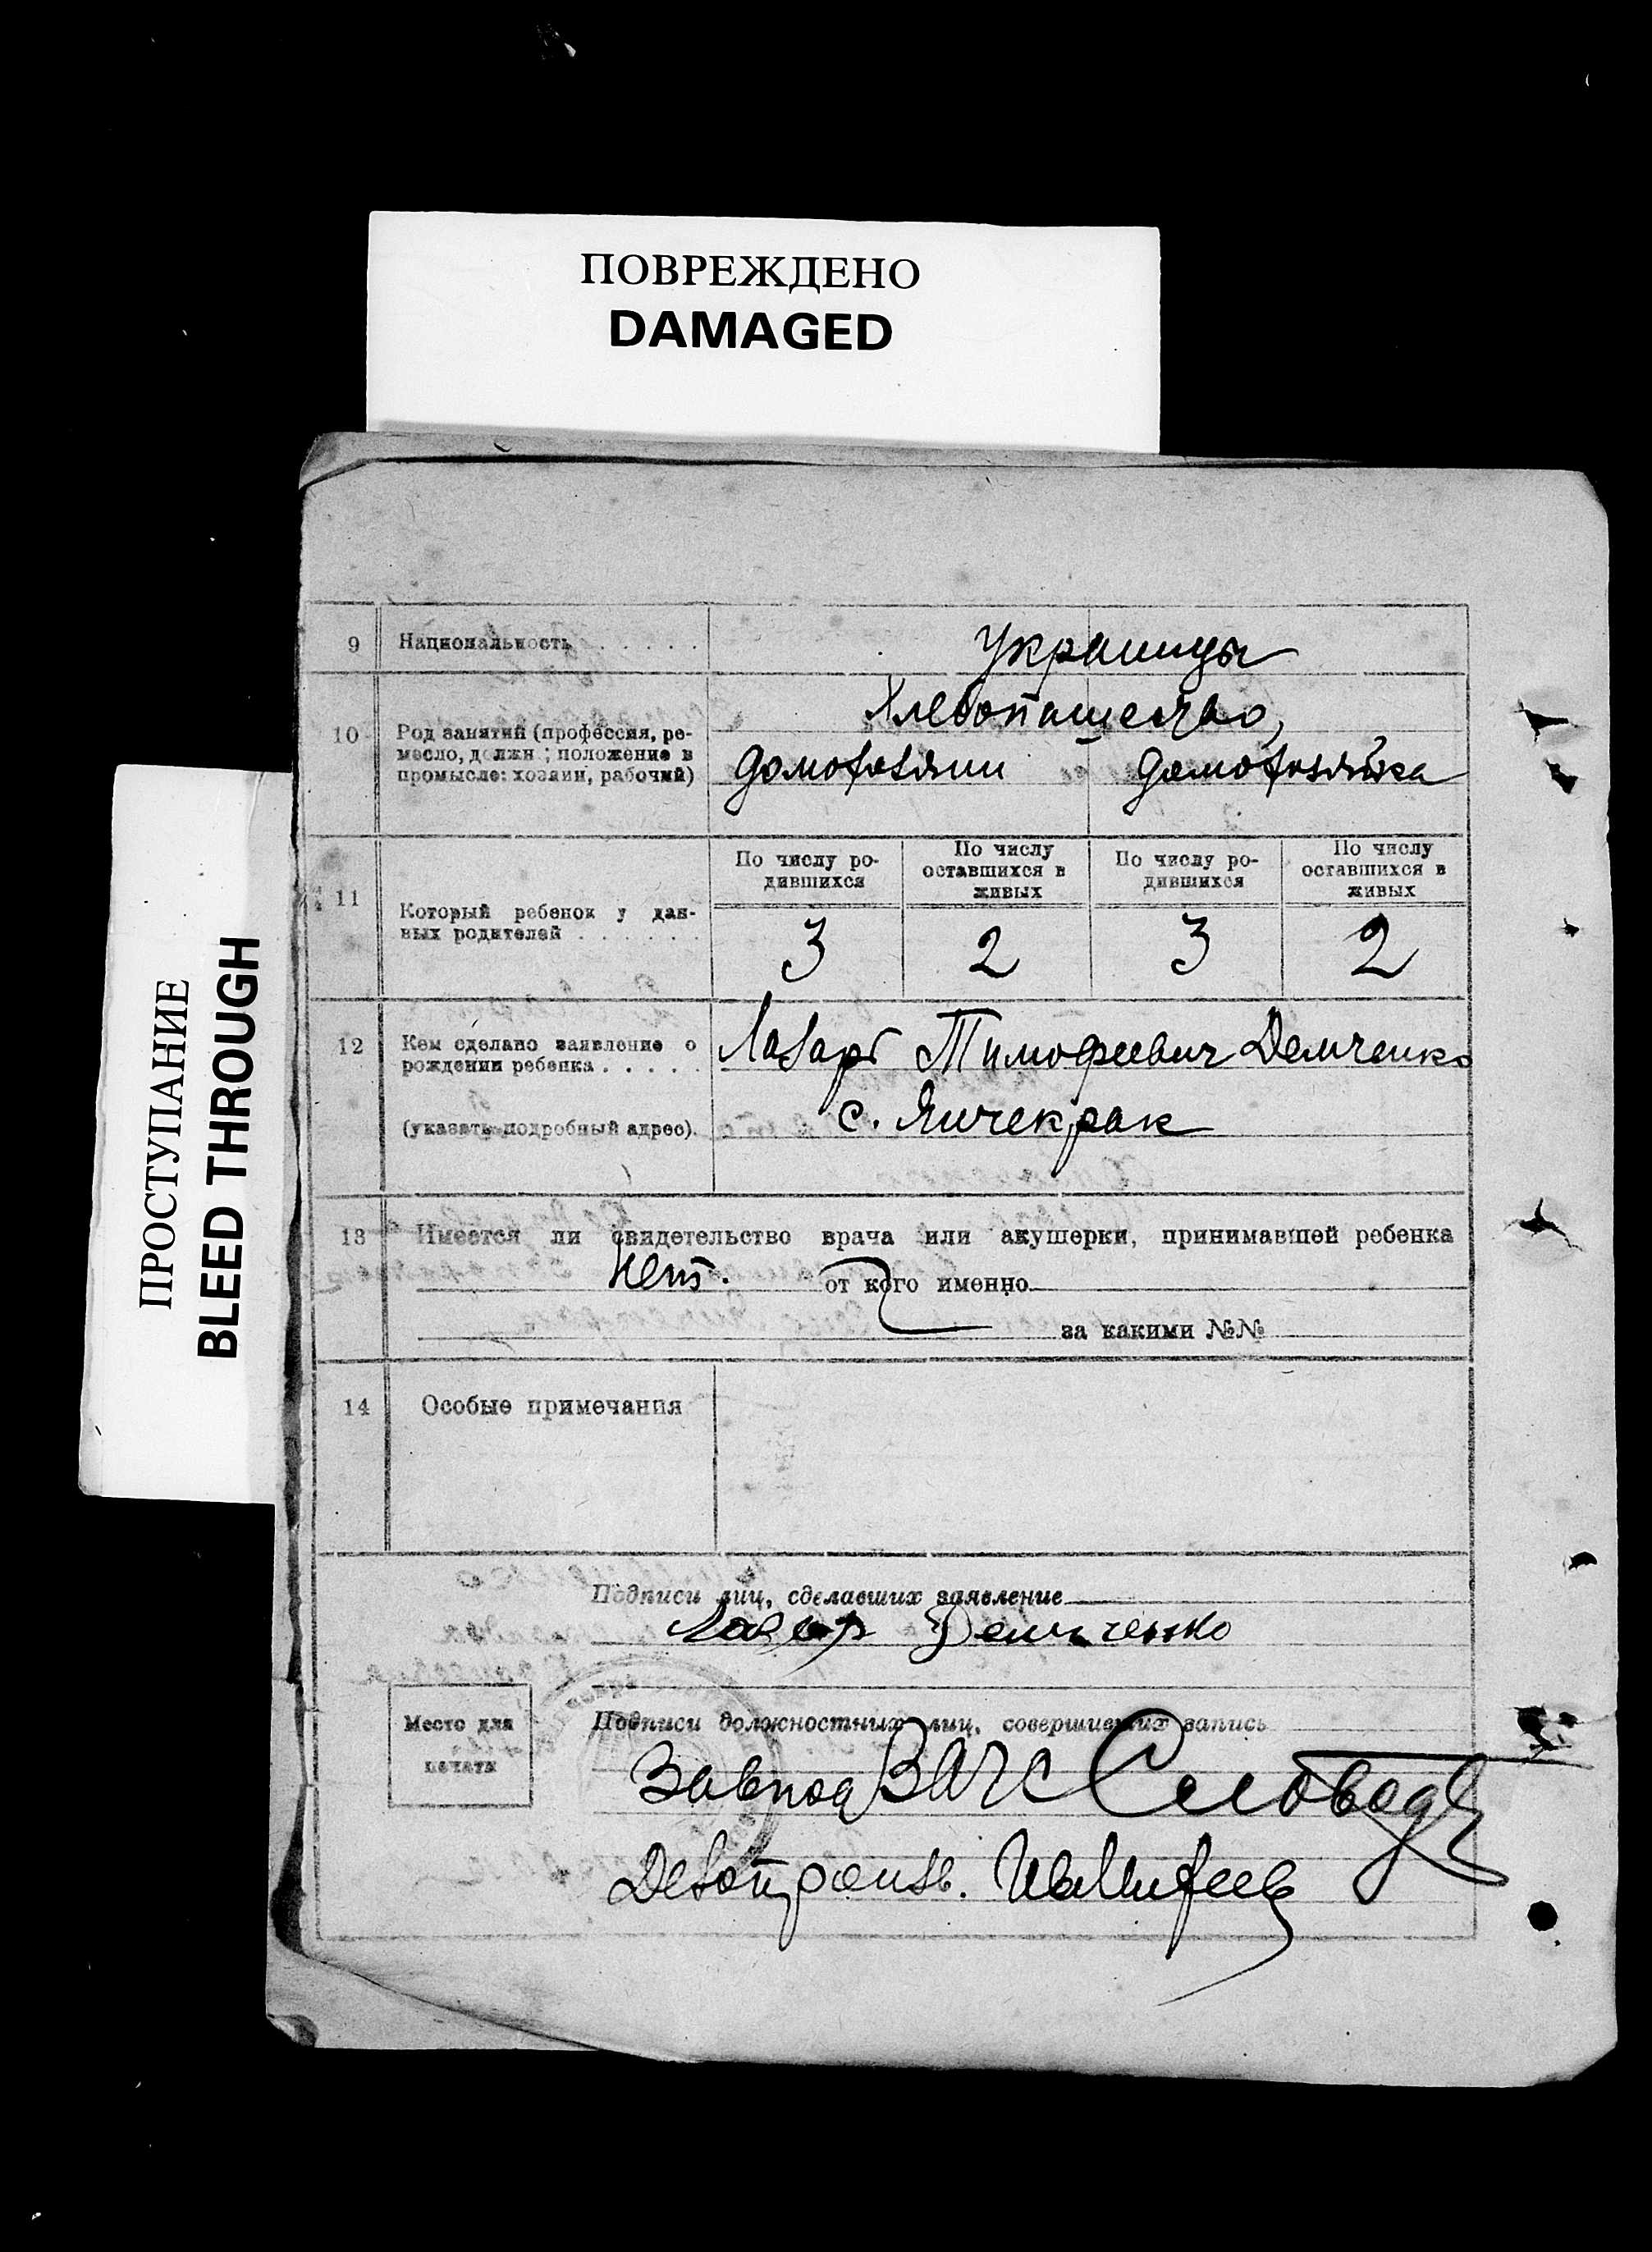 ПОВРЕЖДЕНО
DAMAGED
ПРОСТУПАНИЕ
BLEED THROUGH
9 Национальность . . . . . Украинцы
10 Род занятий (профессия, ре-
месло, должн ; положение в
промысле: хозяин, рабочий)
Хлебопашество,
домохозяин домохозяйка
11 Который ребенок у дан-
ных родителей . . . . . .
По числу ро-
дившихся
По числу
оставшихся в
живых
По числу ро-
дившихся
По числу
оставшихся в
живых
3 2 3 2
12 Кем сделано заявление о
рождении ребенка . . . . .
(указать подробный адрес).
Лазарь Тимофеевич Демченко
с. Янчекрак
13 Имеется ли свидетельство врача или акушерки, принимавшей ребенка
Нет. от кого именно
за какими №№
14 Особые примечания
Подписи лиц, сделавших заявление
Лазар Демченко
Место для
печати
Подписи должностных лиц, совершивших запись
Завпод ЗАГС
Делопроизв.